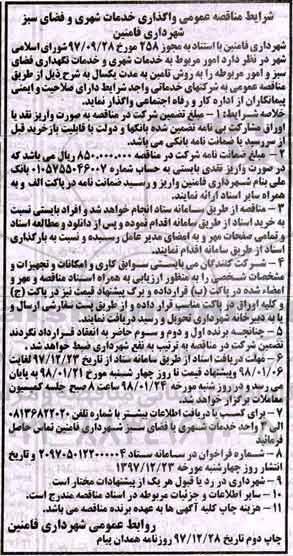 شرایط مناقصه عمومی واگذاری خدمات شهری و فضای سبز
شهرداری فامنین
شهرداری فامنین با استناد به مجوز ۲۵۸ مورخ ۹۷/۰۹/۲۸ شورای اسلامی
شهر در نظر دارد امور مربوط به خدمات شهری و خدمات نگهداری فضای
سبز و امور مربوطه را به روش تامین به مدت یکسال به شرح ذیل از طریق
مناقصه عمومی به شرکتهای خدماتی واجد شرایط دارای صلاحیت و ایمنی
پیمانکاران از اداره کار و رفاه اجتماعی واگذار نماید.
خلاصه شرایط: ۱ - مبلغ تضمین شرکت در مناقصه به صورت واریز نقد یا
اوراق مشارکت بی نامه تضمین شده بانکها و دولت با قابلیت بازخرید قبل
از سررسید یا ضمانت نامه بانکی می باشد.
۲ - مبلغ ضمانت نامه شرکت در مناقصه ۸۵۰,۰۰۰,۰۰۰ ریال می باشد که
در صورت واریز نقدی بایستی به حساب شماره ۰۱۰۵۷۵۵۰۴۶۰۰۷ بانک
ملی بنام شهرداری فامنین واریز و رسید ضمانت نامه در پاکت الف و به
همراه سایر اسناد ارائه نمایند.
۳ - مناقصه از طریق سامانه ستاد انجام خواهد شد و افراد بایستی نسبت
به خرید اسناد از طریق سامانه اقدام نموده و پس از دانلود و مطالعه اسناد
و تمامی صفحات مهر و به امضای مدیر عامل رسیده و نسبت به بارگذاری
اسناد از طریق سامانه اقدام نمایند.
۴ - شرکت کنندگان می بایستی سوابق کاری و امکانات و تجهیزات و
مشخصات شخصی را به منظور ارزیابی به همراه اسناد مناقصه و مهر و
امضاء شده در پاکت (ب) قرارداده و برگ پیشنهاد قیمت نیز در پاکت (ج)
و کلیه اوراق در پاکت مناسب قرار داده و از طریق پست سفارشی ارسال و
یا به دبیرخانه شهرداری تحویل و رسید دریافت نمایند.
۵ - چنانچه برنده اول و دوم و سوم حاضر به انعقاد قرارداد نگردند
تضمین شرکت در مناقصه به ترتیب به نفع شهرداری ضبط خواهد شد.
۶ - مهلت دریافت اسناد از طریق سامانه ستاد از تاریخ ۹۷/۱۲/۲۳ لغایت
۹۸/۰۱/۰۶ و پیشنهاد قیمت تا روز چهار شنبه مورخ ۹۸/۰۱/۲۱ به پایان
می رسد و در روز شنبه مورخه ۹۸/۰۱/۲۴ ساعت ۸ صبح جلسه کمیسیون
معاملات برگزار خواهد شد.
۷ - برای کسب یا دریافت اطلاعات بیشتر با شماره تلفن ۰۸۱۳۶۸۲۲۰۲۰
الی ۳ واحد خدمات شهری یا فضای سبز شهرداری فامنین تماس حاصل
فرمائید
۸ - شماره فراخوان در سامانه ستاد ۲۰۹۷۰۵۰۱۲۲۰۰۰۰۰۴ و تاریخ
انتشار روز چهارشنبه مورخه ۱۳۹۷/۱۲/۲۳
۹ - شهرداری در رد یا قبول هر یک از پیشنهادات مختار است.
۱۰ - سایر اطلاعات و جزئیات مربوطه در اسناد مناقصه مندرج است.
۱۱ - هزینه چاپ کلیه آگهی ها به عهده برنده مناقصه می باشد.
روابط عمومی شهرداری فامنین
چاپ دوم تاریخ ۹۷/۱۲/۲۸ روزنامه همدان پیام